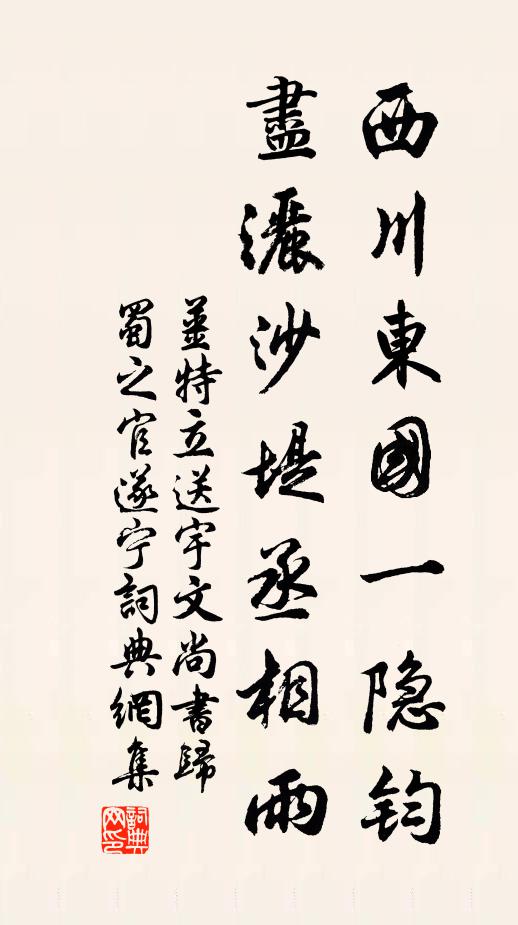 西川東國一隐鈞
盡灑沙堤丞相雨
姜特立送宇文尚書歸
蜀之官遂宁詞典網集
詞典
网印